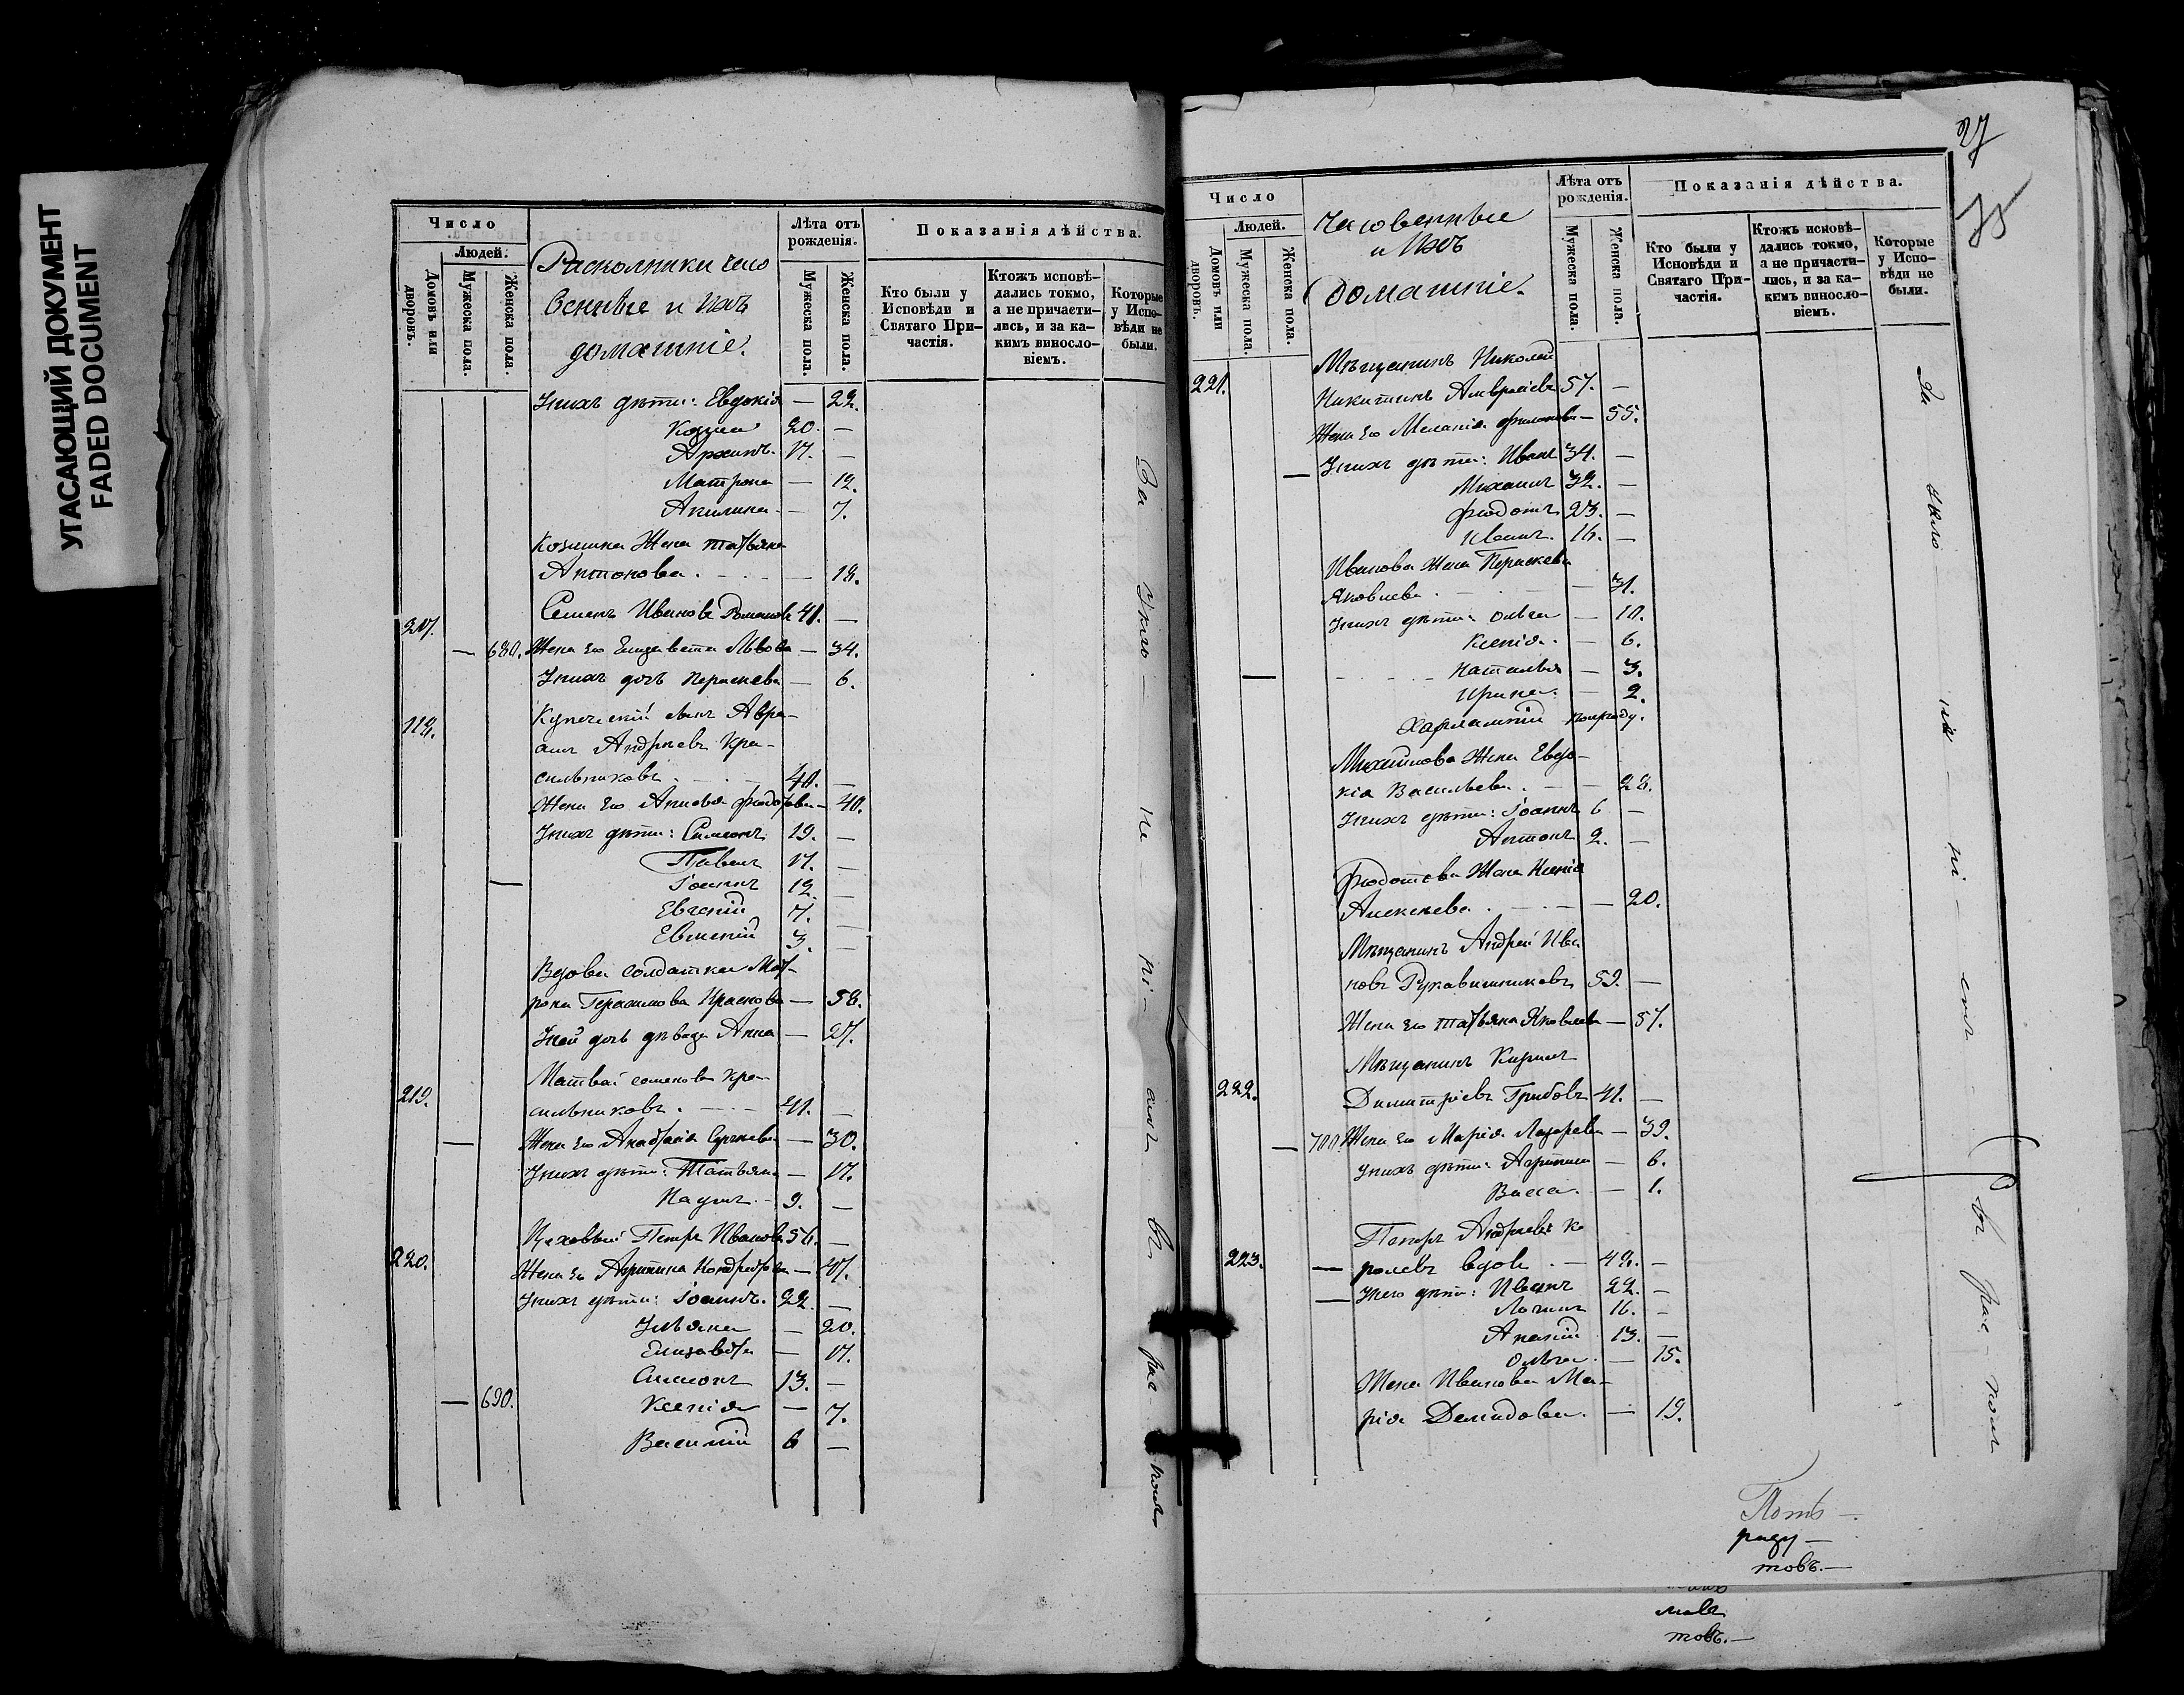 УГАСАЮЩИЙ ДОКУМЕНТ
FADED DOCUMENT
Число
Людей.
Домовъ или дворовъ.
Мужеска пола.
Женска пола.
Раскольники часо
венные и ихъ
домашніе.
Лѣта отъ рожденія.
Мужеска пола.
Женска пола.
Показанія дѣйства.
Кто были у Исповѣди и Святаго При-частія.
Ктожъ исповѣ-дались токмо, а не причасти-лись, и за ка-кимъ винословіемъ.
Которые у Испо-вѣди не были.
У нихъ дѣти: Евдокія — 22.
Козма 20. —
17. —
Матрона — 12.
Акилина — 7.
Козмина Жена Татьяна
Антонова — 18.
217. Семенъ Ивановъ Романовъ 41. —
— 680. Жена его Елизавета Львова — 34.
У нихъ дочь Параскева — 6.
118. Купеческій сынъ Авра-
амъ Андреевъ Кра-
сильниковъ 40. —
Жена его Анисья Ѳеодорова — 40.
У нихъ дѣти: Симеонъ 19. —
Павелъ 17. —
— Іоаннъ 12 —
Евгеній 7. —
Евменій 3. —
Вдова солдатка Мат-
рона Герасимова Краснова — 58.
У ней дочь дѣвица Анна — 27.
219. Матвей Семеновъ Кра-
сильниковъ 41. —
— Жена его Анастасія Сергѣева — 30.
У нихъ дѣти: Татьяна — 17.
Наумъ 9. —
Цеховый Петръ Ивановъ 56. —
220. Жена его Агрипина Кондратова — 47.
У нихъ дѣти: Іоаннъ 22. —
Ульяна — 20.
Елизавета — 17.
Симеонъ 13. —
— 690. Ксенія — 7.
Василій 6 —
За укло не ні емъ въ рас колъ
27
Число
Людей.
Домовъ или дворовъ.
Мужеска пола.
Женска пола.
Часовенные
и ихъ
домашніе.
Лѣта отъ рожденія.
Мужеска пола.
Женска пола.
Показанія дѣйства.
Кто были у Исповѣди и Святаго При-частія.
Ктожъ исповѣ-дались токмо, а не причасти-лись, и за ка-кимъ винословіемъ.
Которые у Испо-вѣди не были.
221. Мѣщанинъ Николай
Никитинъ 57. —
Жена его Меланія Филипова — 55.
— У нихъ дѣти: Иванъ 34. —
Михаилъ 32. —
Ѳеодотъ 23. —
Иванъ 16. —
Иванова Жена Параскева
Яковлева — 31.
У нихъ дѣти: Ольга — 10.
Ксенія — 6.
— Наталья — 3.
Ирина — 2.
Харлампій полугоду.
Михайлова Жена Евдо-
кія Васильева — 28.
У нихъ дѣти: Іоаннъ 6 —
Антонъ 2. —
Ѳеодотова Жена Ксенія
Алексѣева — 20.
Мѣщанинъ Андрей Ива
новъ Рукавишниковъ 59. —
Жена его Татьяна Яковлева — 57.
Мѣщанинъ Кирилъ
222. Димитріевъ Грибовъ 41. —
— 700. Жена его Марія Лазарева — 39.
У нихъ дѣти: Агрипина — 6.
Васса — 1.
Петръ Андреевъ Ко
223. — ролевъ вдовъ 42. —
— У него дѣти: Иванъ 22. —
Логинъ 16. —
Ананій 13. —
Ольга — 15.
Жена Иванова Ма-
рія Демидова — 19.
За укло не ні емъ въ рас колъ
разу —
товъ. —
товъ. —